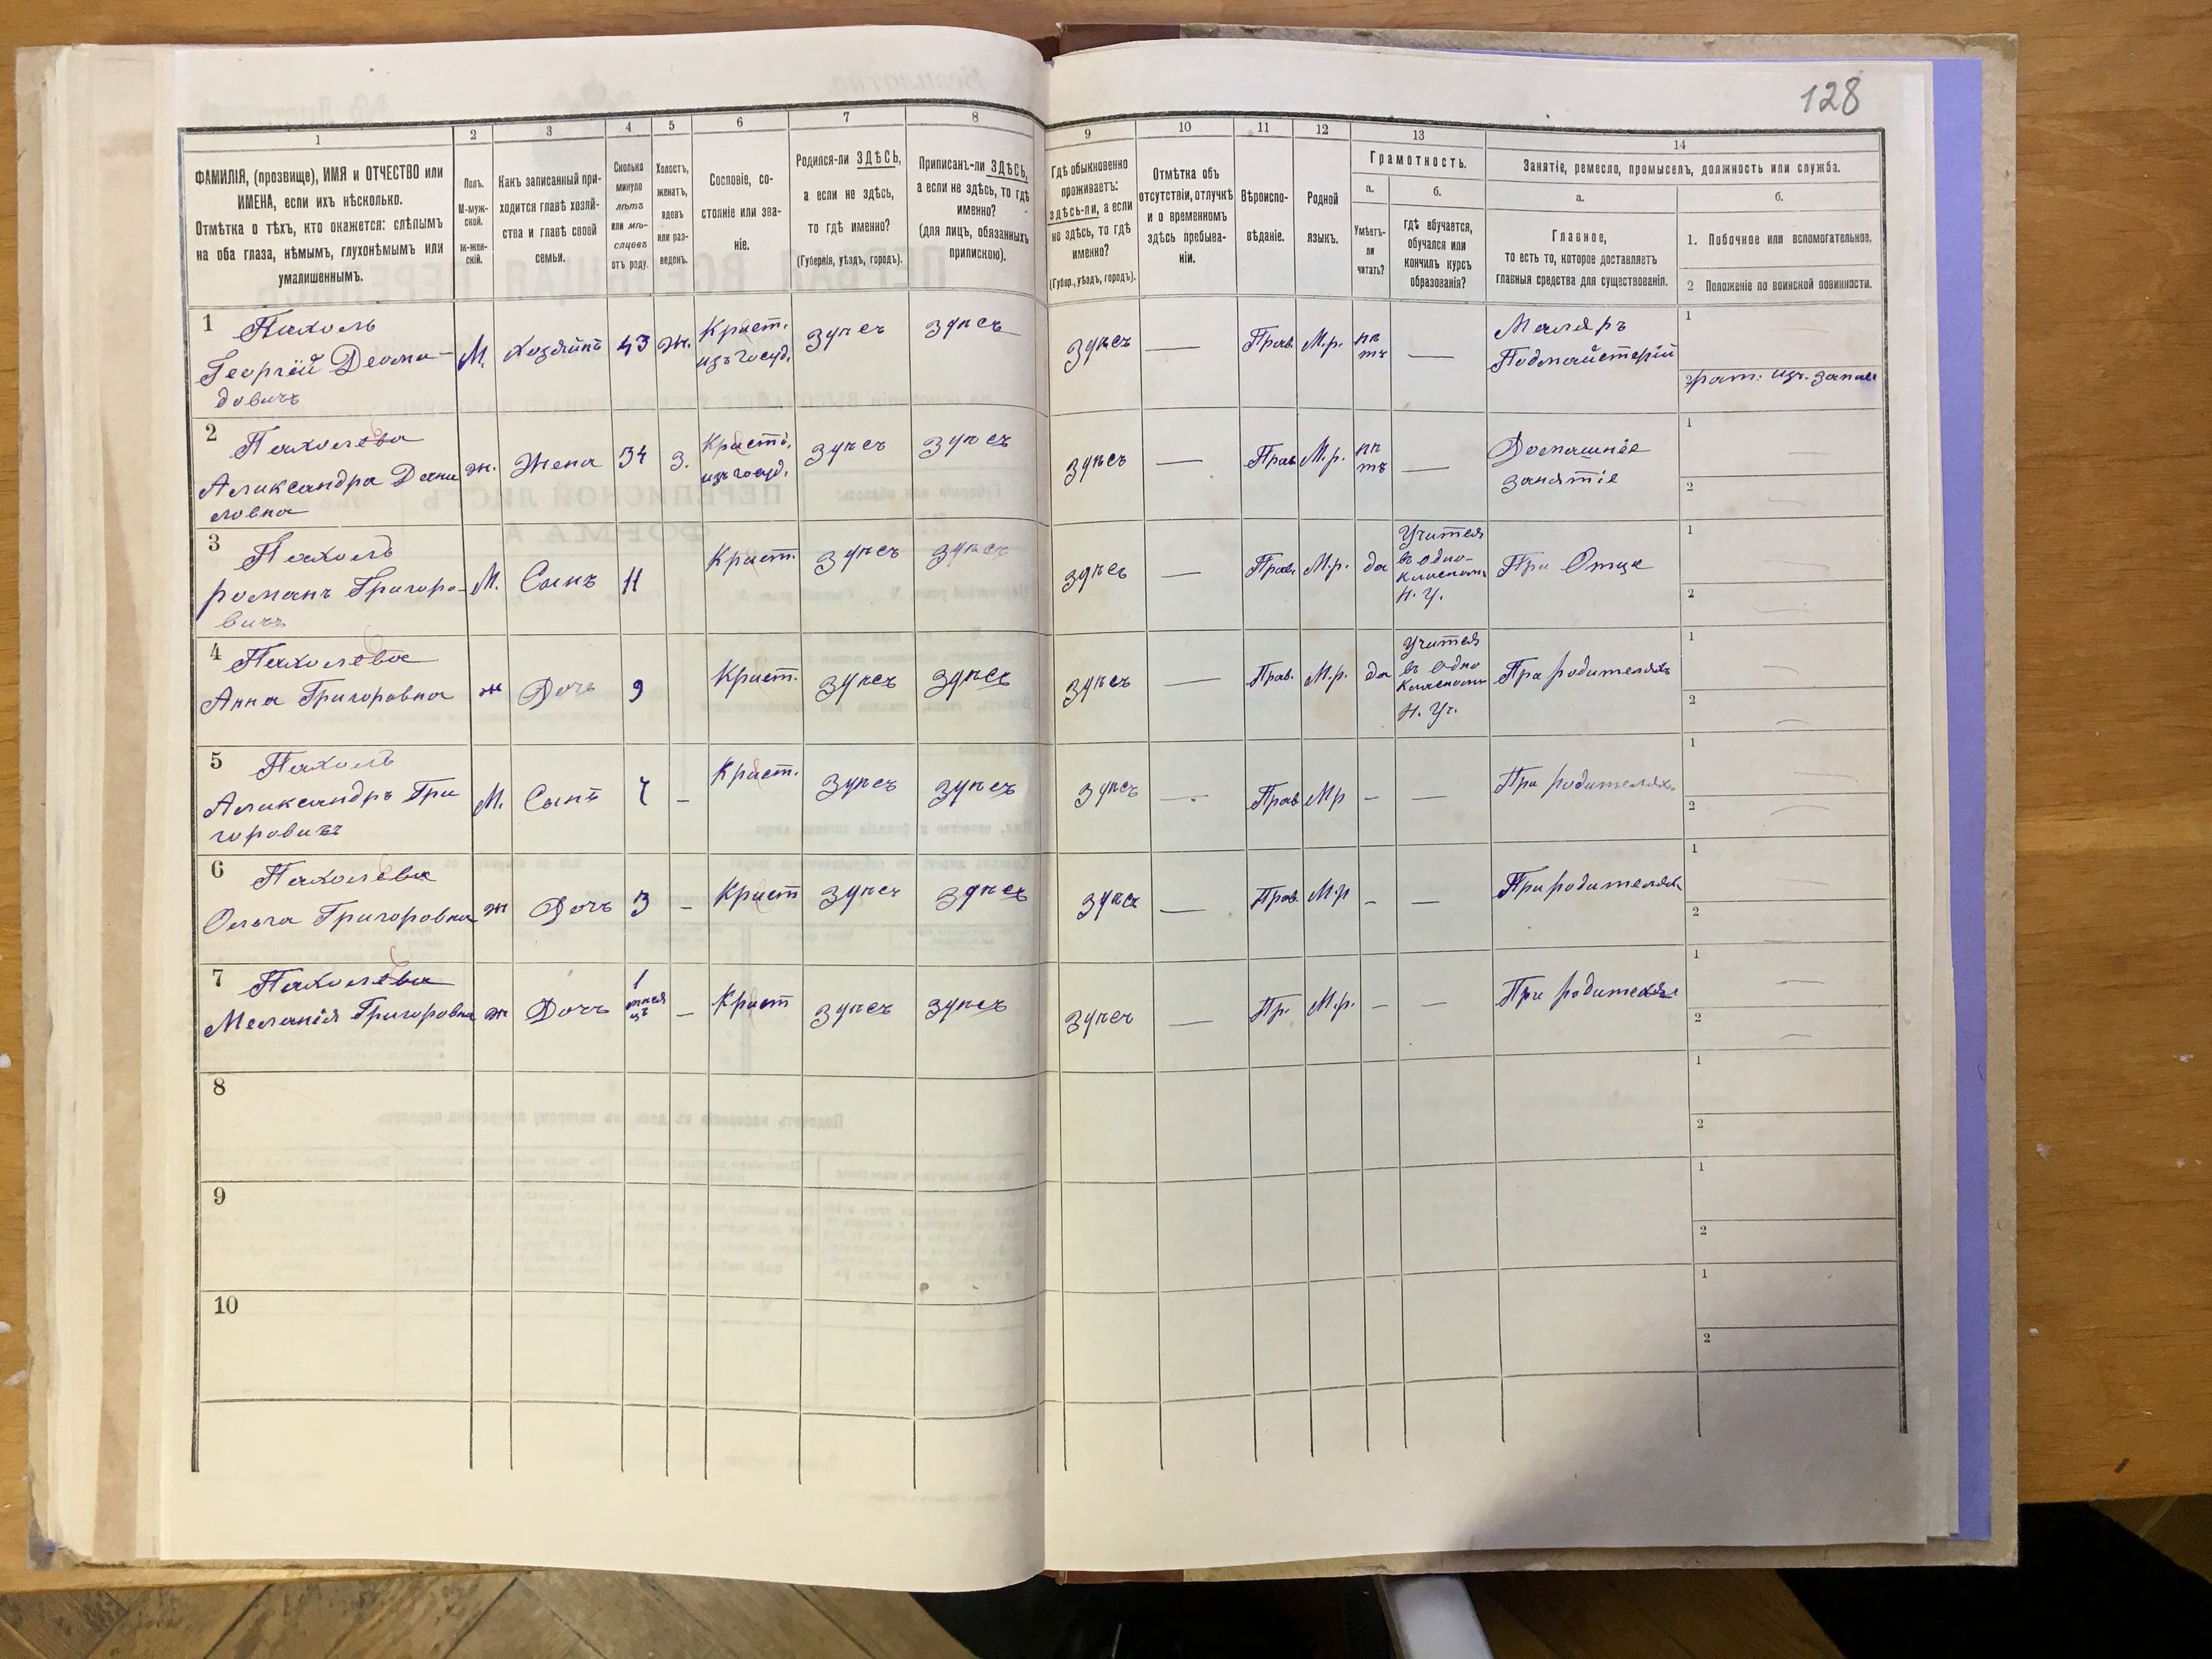 128
1
2
3
4
5
6
7
8
9
10
11
12
13
14
ФАМИЛІЯ, (прозвище), ИМЯ и ОТЧЕСТВО или
ИМЕНА, если ихъ нѣсколько.
Отмѣтка о тѣхъ, кто окажется: слѣпымъ
на оба глаза, нѣмымъ, глухонѣмымъ или
умалишеннымъ.
Полъ.
М-муж-
ской.
ж-жен-
скій.
Какъ записанный при-
ходится главѣ хозяй-
ства и главѣ своей
семьи.
Сколько
минуло
лѣтъ
или мѣ-
сяцевъ
отъ роду.
Холостъ,
женатъ,
вдовъ
или раз-
веденъ.
Сословіе, со-
стояніе или зва-
ніе.
Родился-ли ЗДѢСЬ,
а если не здѣсь,
то гдѣ именно?
(Губернія, уѣздъ, городъ).
Приписанъ-ли ЗДѢСЬ,
а если не здѣсь, то гдѣ
именно?
(для лицъ, обязанныхъ
припискою).
Гдѣ обыкновенно
проживаетъ:
здѣсь-ли, а если
не здѣсь, то гдѣ
именно?
(Губер., уѣздъ, городъ).
Отмѣтка объ
отсутствіи, отлучкѣ
и о временномъ
здѣсь пребыва-
ніи.
Вѣроиспо-
вѣданіе.
Родной
языкъ.
Грамотность.
а.
б.
Умѣетъ-
ли
читать?
гдѣ обучается,
обучался или
кончилъ курсъ
образованія?
Занятіе, ремесло, промыселъ, должность или служба.
а.
б.
Главное,
то есть то, которое доставляетъ
главныя средства для существованія.
1. Побочное или вспомогательное.
2 Положеніе по воинской повинности.
1 Пахоль
Георгій Диоми-
довичъ
М. Хозяинъ 43 Ж. Крест. изъ госуд. здѣсь здѣсь здѣсь — Прав. М.р. нѣтъ —
Маляръ
Подмайстерій
1
2
2 Пахолева
Александра Дани
ловна
ж. Жена 34 З. Крест. изъ госуд. здѣсь здѣсь здѣсь — Прав М.р. нѣтъ —
Домашнее
занятіе
1
2
3 Пахоль
романъ Григоро-
вичъ
М. Сынъ 11 Крест. здѣсь здѣсь здѣсь — Прав. М.р. да
Учится
въ одно-
класном
Н. У.
При Отце
1
2
4 Пахолева
Анна Григоровна
ж Дочь 9 Крест. здѣсь здѣсь здѣсь — Прав. М.р. да
Учится
въ одно
класном
Н. Уч.
При родителяхъ
1
2
5 Пахоль
Александръ Гри
горовичъ
М. Сынъ – Крест. здѣсь здѣсь здѣсь — Прав М.р – — При родителяхъ
1
2
6 Пахолева
Ольга Григоровна
ж Дочь 3 – Крест здѣсь здѣсь здѣсь — Прав. М.р – — При родителяхъ
1
2
7 Пахолева
Меланія Григоровна
ж Дочь 1 мѣсяцъ – Крест здѣсь здѣсь здѣсь — Пр. М.р. – — При родителях
1
2
8
1
2
9
1
2
10
1
2